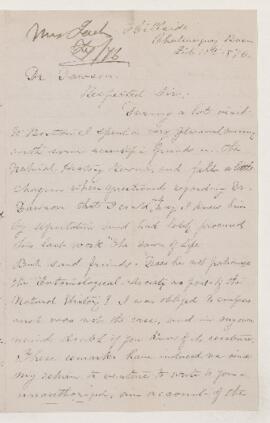 Hillside
Feb 1876
Dr Dawson.
Respected Sir,
During a late visit
to Boston I spent a very pleasant evening
with some scientific friends in the
Natural History Rooms, and felt a little
chagrin when questioned regarding Dr.
Dawson that I could only say I knew him
by reputation and had lately procured
his last work "The dawn of Life"
But said friends - Does he not patronize
the Entomological society as part of the
Natural History? I was obliged to confess
such was not the case, and in my own
minds
These remarks have induced me since
my return to venture to write to you -
unauthorized, an account of the